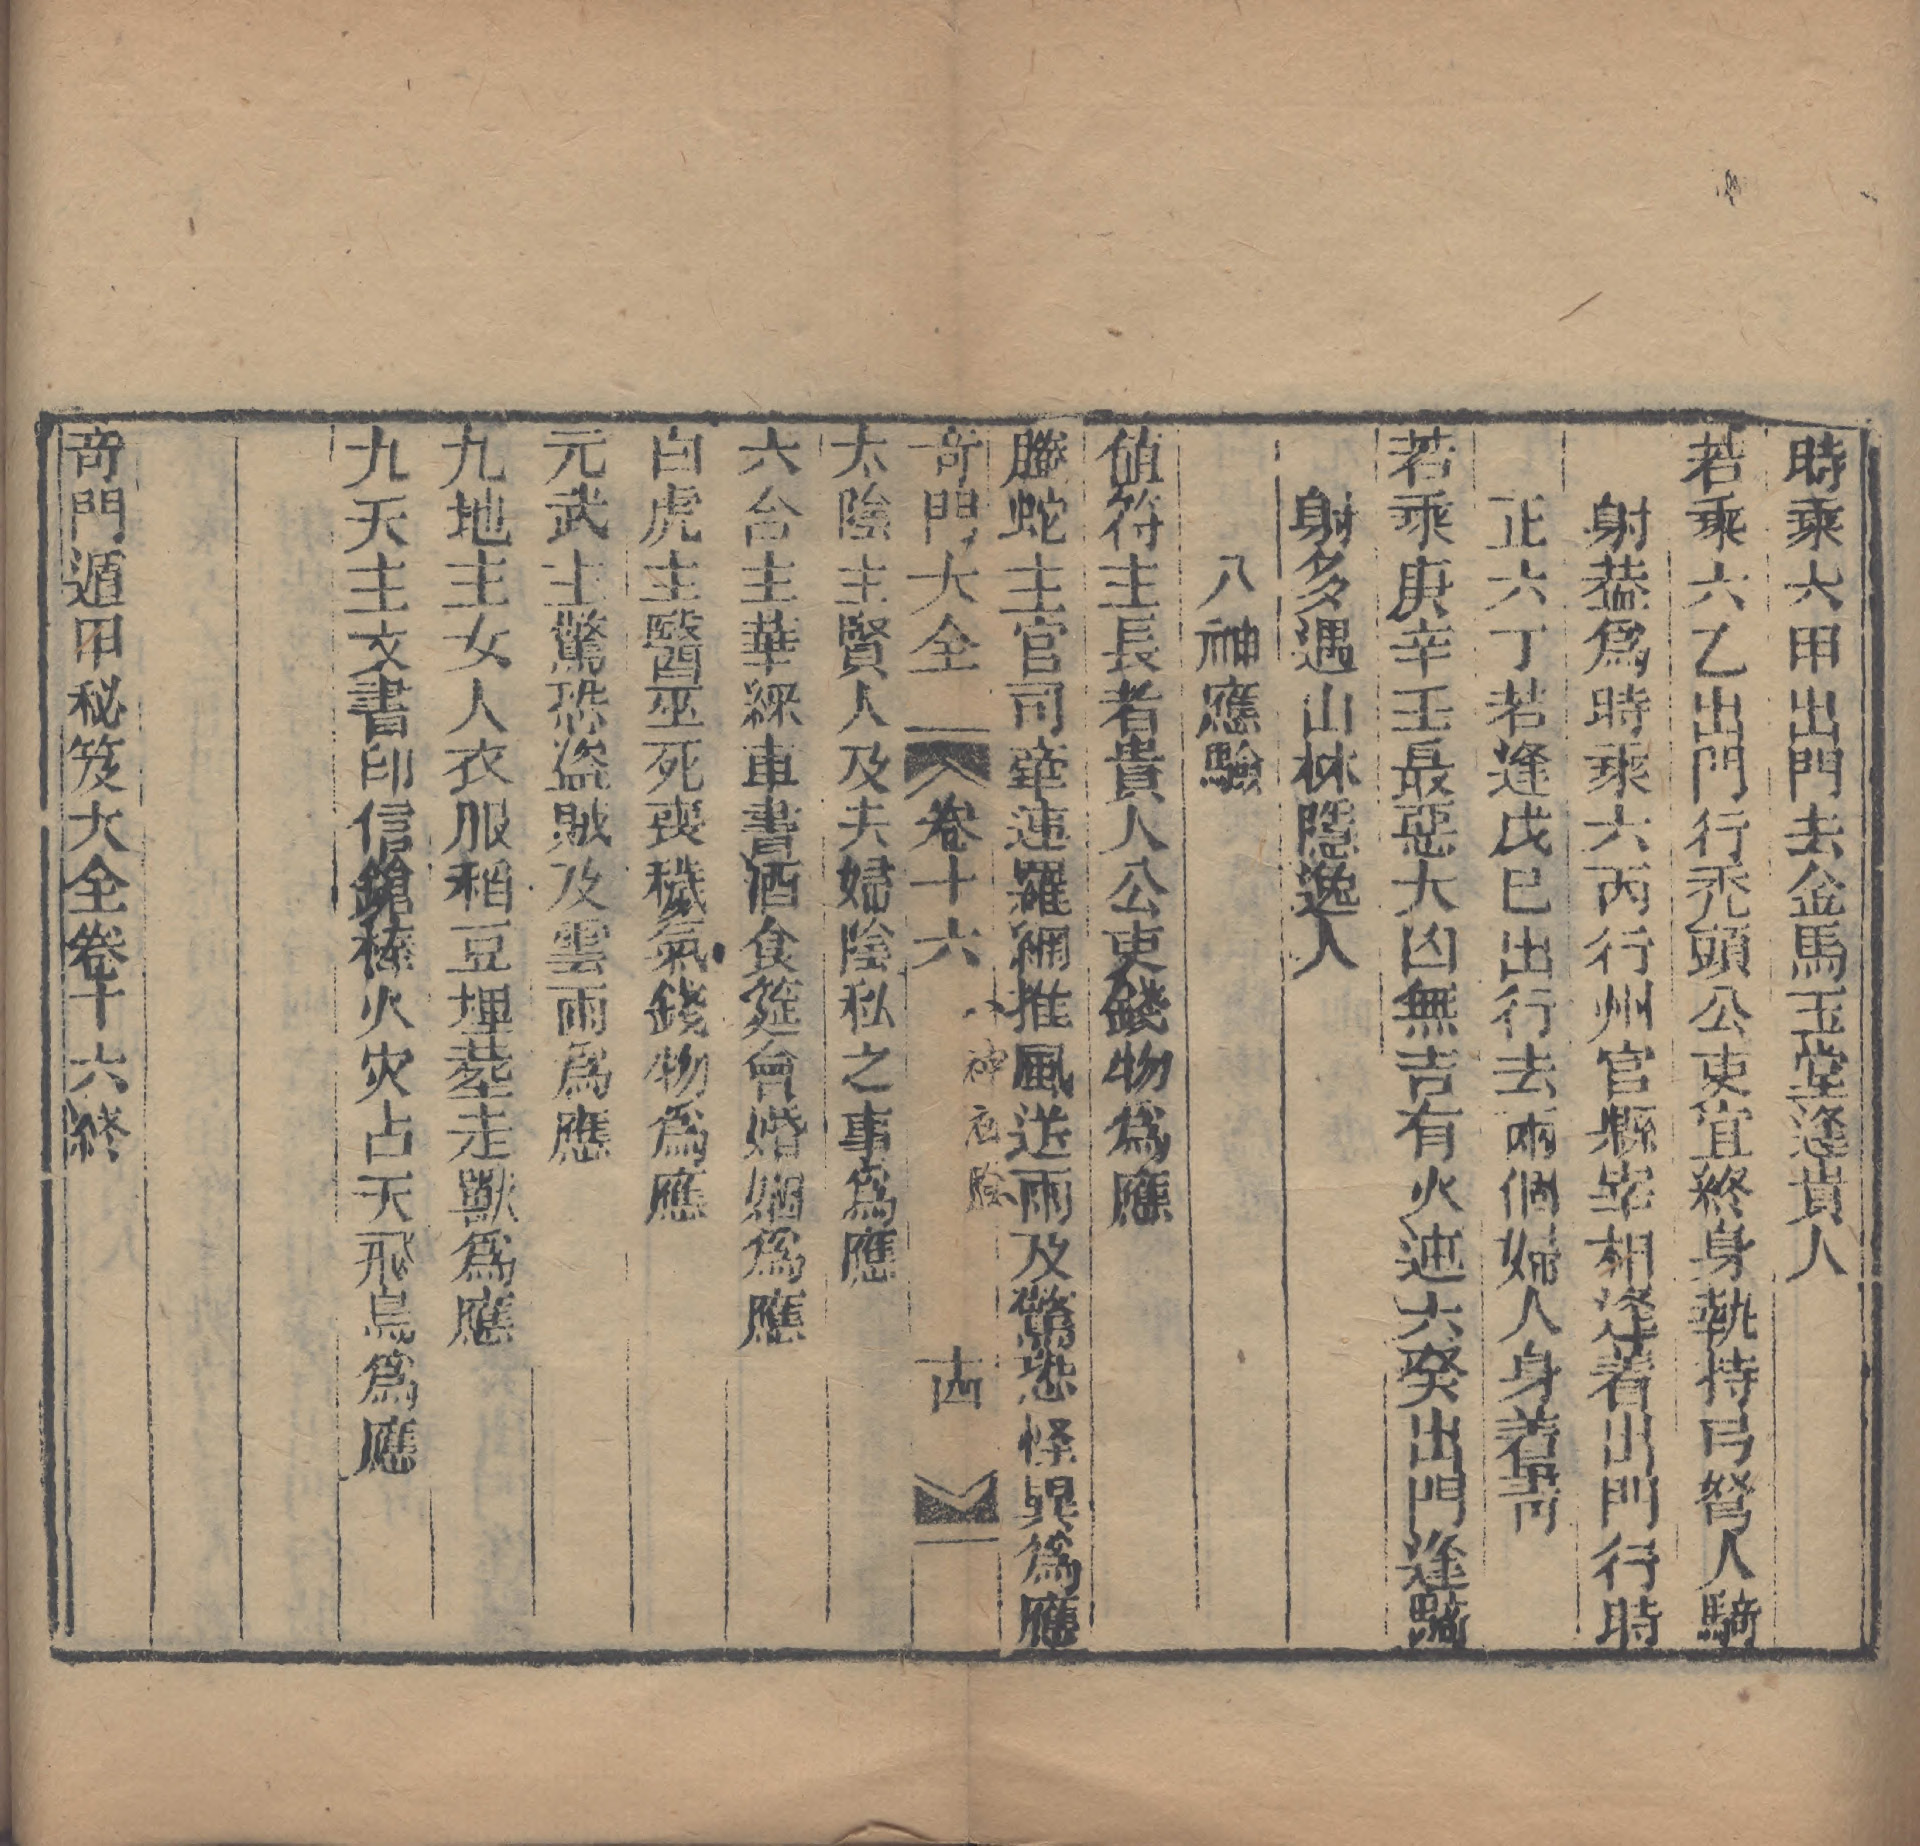 時乘六甲出門去金馬玉堂逢貴人
若乘六乙出門行禿頭公吏宜終身執持弓弩人騎
射葢爲時乘六丙行州官縣宰相逢着出門行時
正六丁若逢戊己出行去兩個婦人身着靑
若乘庚辛壬最惡大凶無吉有火迍六癸出門逢騎
射多遇山林隱逸人
八神應驗
値符主長者貴人公吏錢物爲應
螣蛇主官司牽連羅網推風送雨及驚恐怪異爲應
奇門大全 卷十六 八神應驗 十四
太陰主賢人及夫婦陰私之事爲應
六合主華綵車書酒食筵會婚姻爲應
白虎主醫巫死喪穢氣錢物爲應
元武主驚恐盜賊及雲雨爲應
九地主女人衣服稻豆埋塟走獸爲應
九天主文書印信鎗棒火灾占天飛鳥爲應
奇門遁甲秘笈大全卷十六終